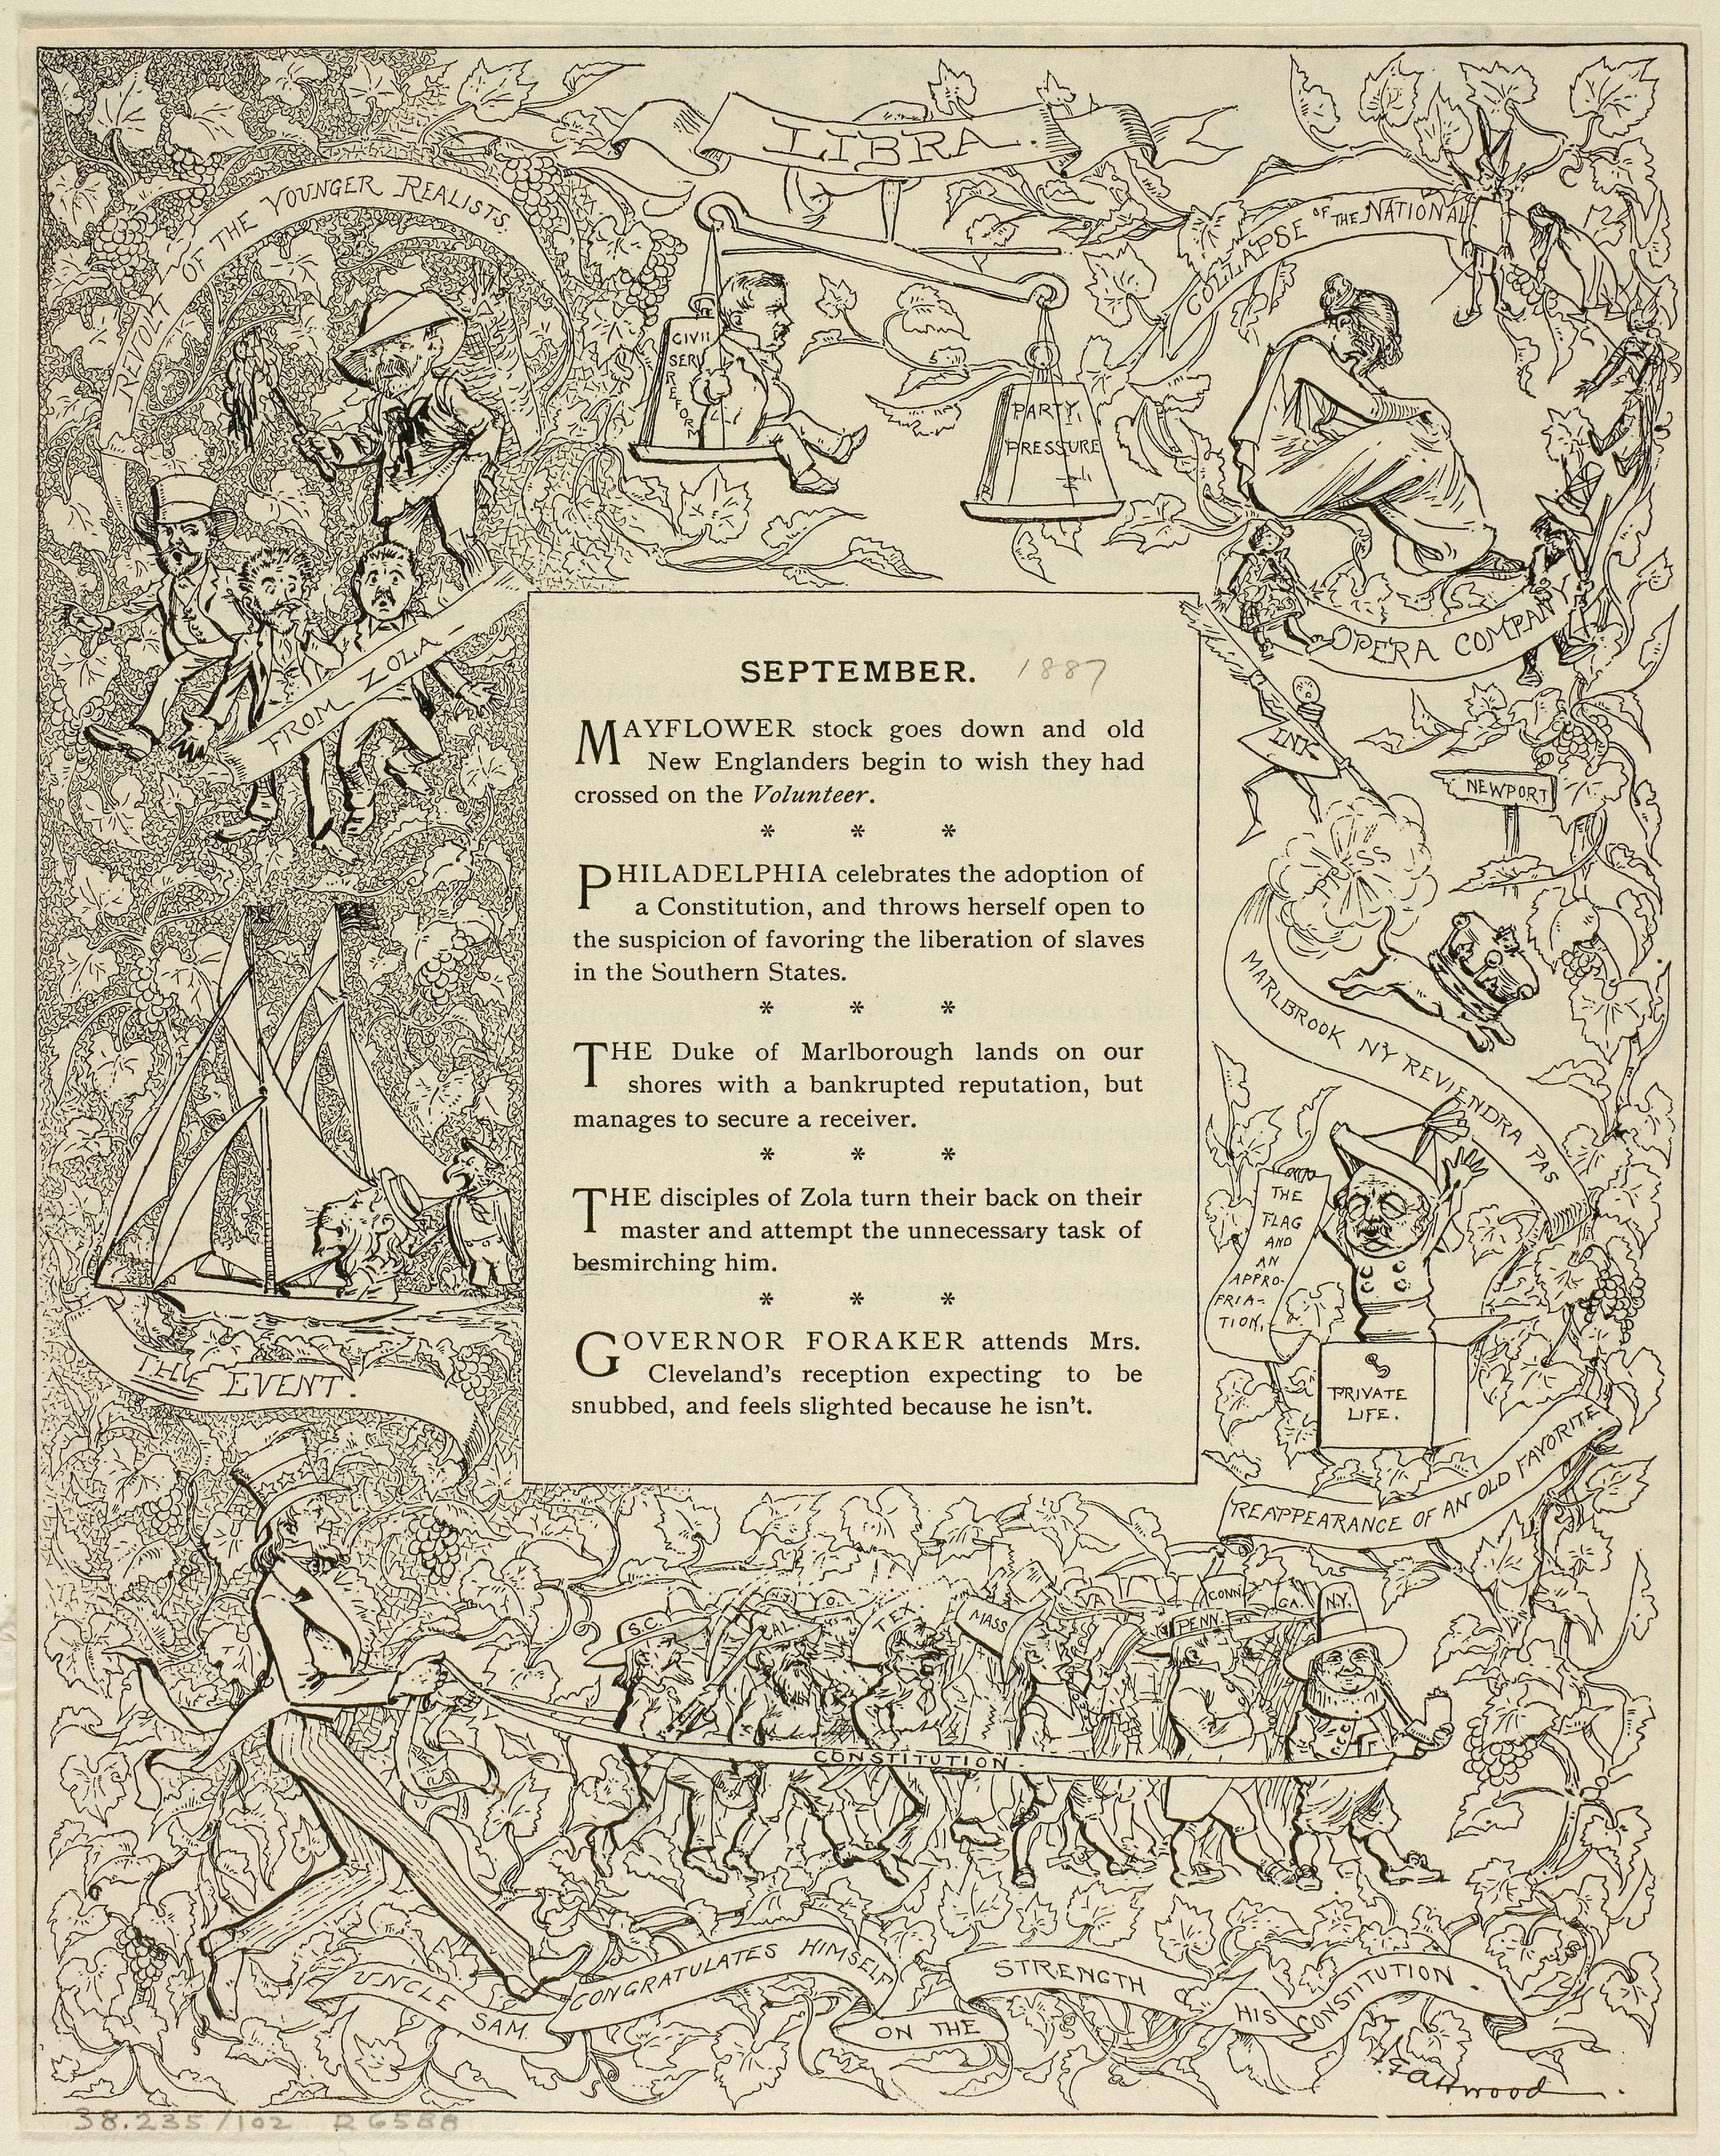 LIBRA.
REVOLT OF THE YOUNGER REALISTS.
FROM ZOLA-
CIVIL
SERV
REFORM
PARTY
PRESSURE
COLLAPSE OF THE NATIONAL
OPERA COMPANY
SEPTEMBER. 1887
MAYFLOWER stock goes down and old
New Englanders begin to wish they had
crossed on the Volunteer.
* * *
PHILADELPHIA celebrates the adoption of
a Constitution, and throws herself open to
the suspicion of favoring the liberation of slaves
in the Southern States.
* * *
THE Duke of Marlborough lands on our
shores with a bankrupted reputation, but
manages to secure a receiver.
* * *
THE disciples of Zola turn their back on their
master and attempt the unnecessary task of
besmirching him.
* * *
GOVERNOR FORAKER attends Mrs.
Cleveland's reception expecting to be
snubbed, and feels slighted because he isn't.
INK
NEWPORT
PRESS
MARLBROOK N'Y REVIENDRA PAS
THE
FLAG
AND
AN
APPRO-
PRIA-
TION.
PRIVATE
LIFE.
REAPPEARANCE OF AN OLD FAVORITE
THE EVENT.
S.C.
CAL.
N.Y.
O.
TEX.
MASS
VA
PENN.
CONN.
GA.
N.Y.
CONSTITUTION.
UNCLE SAM. CONGRATULATES HIMSELF ON THE STRENGTH OF HIS CONSTITUTION.
Attwood
38.235/102 R6588